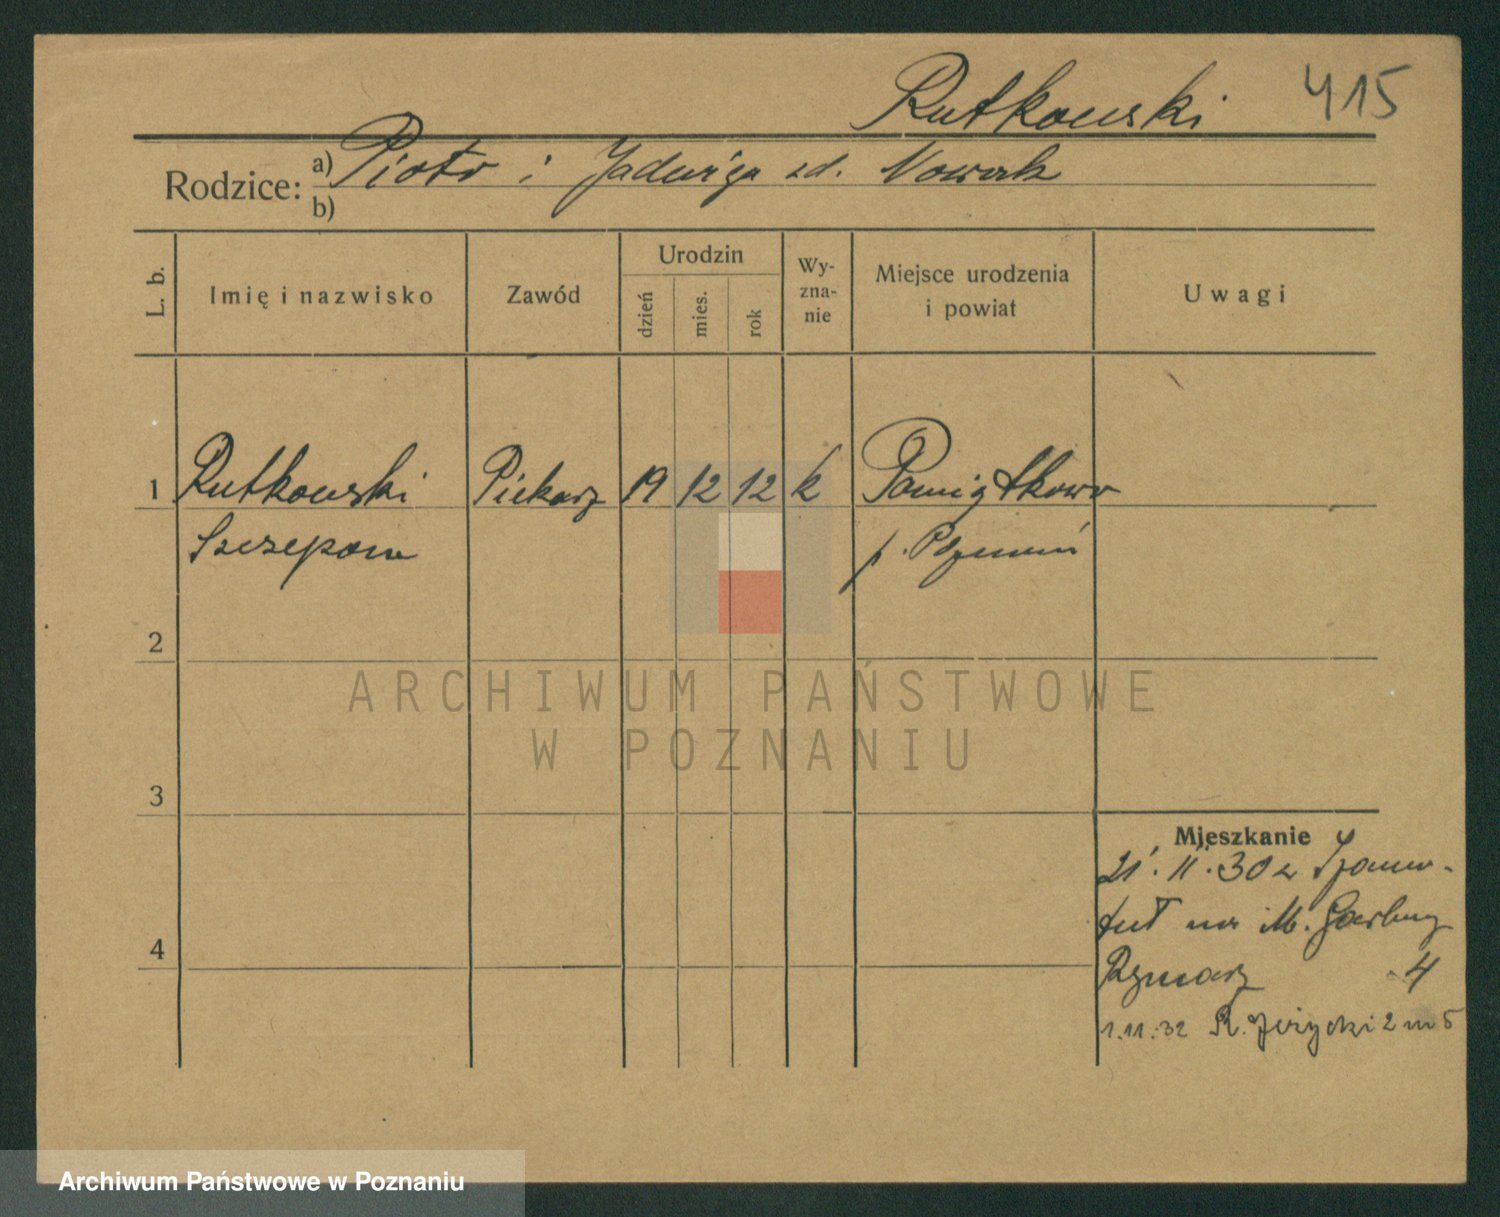 Rutkowski 415
Rodzice: a) Piotr i Jadwiga zd. Nowak
b)
L. b. Imię i nazwisko Zawód Urodzin dzień mies. rok Wy-zna-nie Miejsce urodzenia i powiat Uwagi
1 Rutkowski Piekarz 19 12 12 k Pamiątkowo
Szczepan p. Poznań
2
ARCHIWUM PAŃSTWOWE
W POZNANIU
3
Mieszkanie
21.11.30 z Szamo-
tuł na M. Garbary
4
Piekarz 4
1.11.32 R. Jeżycki 2 m 5
Archiwum Państwowe w Poznaniu